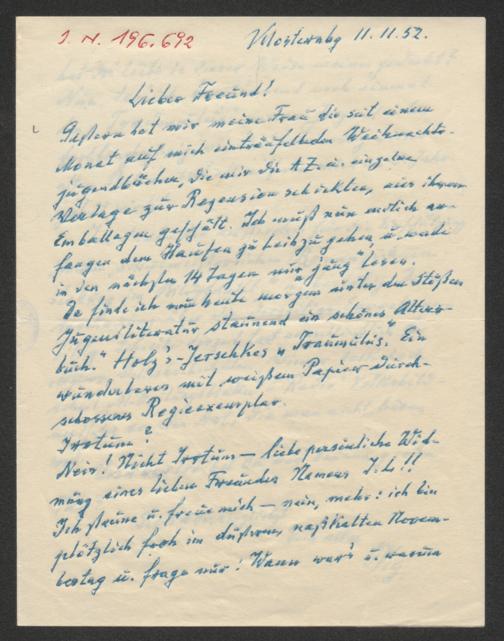 I. N. 196.692
Klosternbg 11.11.52.
Lieber Freund!
Gestern hat mir meine Frau die seit einem
Monat auf mich einträufelnden Weihnachts-
jugendbücher, die mir die AZ. u. einzelne
Verlage zur Rezension schickten, aus ihrem
Emballagen geschält. Ich muß nun endlich an-
fangen dem Haufen zu Leib zu gehen u. werde
in den nächsten 14 Tagen nur "jung" lesen.
Da finde ich nun heute morgen unter den Stößen
Jugendliteratur staunend ein schönes Alters-
buch: Holz's-Jerschkes "Traumulus." Ein
wunderbares mit weißem Papier durch-
schossenes Regieexemplar.
Irrtum?
Nein! Nicht Irrtum — liebe persönliche Wid-
mung eines lieben Freundes Namens
Ich staune u. freue mich — nein, mehr: ich bin
plötzlich froh im düstren, naßkalten Novem-
bertag u. frage nur: Wann war's u. warum